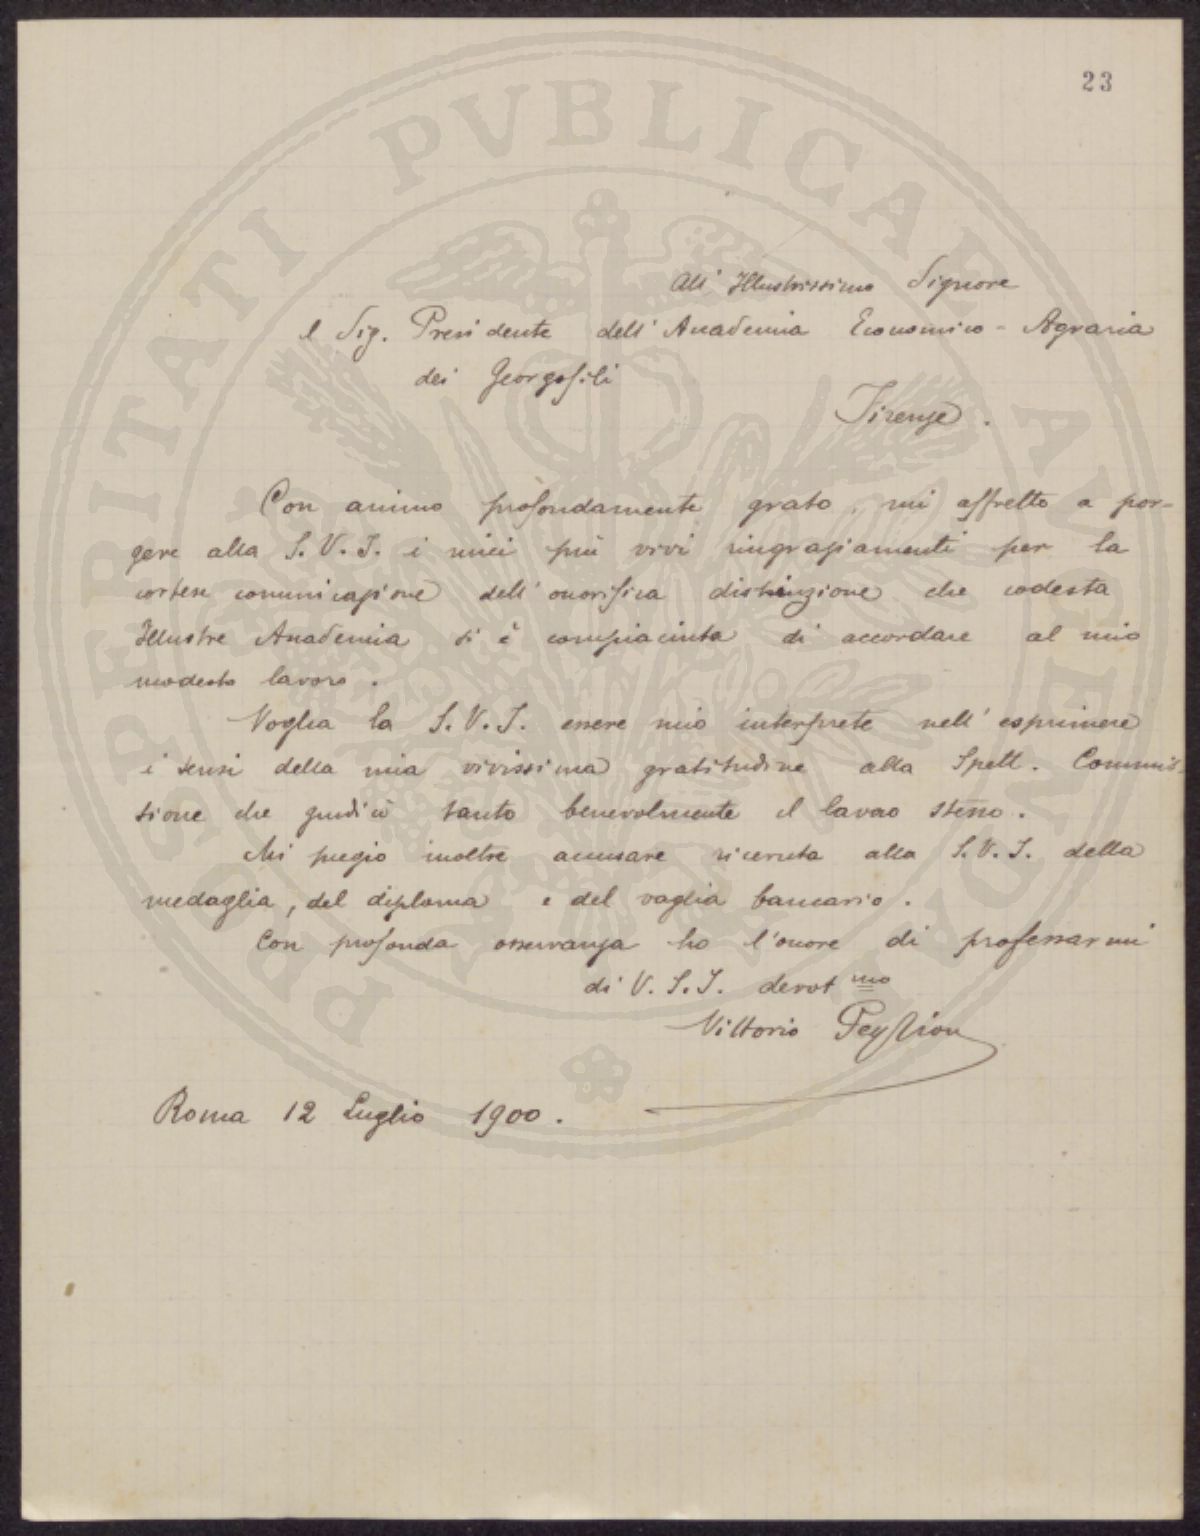 23
PROSPERITATI PVBLICAE AVGENDAE
All' Illustrissimo Signore
Il Sig. Presidente dell'Accademia Economico-Agraria
dei Georgofili
Firenze.
Con animo profondamente grato, mi affretto a por-
gere alla S.V.I. i miei più vivi ringraziamenti per la
cortese comunicazione dell'onorifica distinzione che codesta
Illustre Accademia si è compiaciuta di accordare al mio
modesto lavoro.
Voglia la S.V.I. essere mio interprete nell'esprimere
i sensi della mia vivissima gratitudine alla Spett. Commis-
sione che giudicò tanto benevolmente il lavoro stesso.
Mi pregio inoltre accusare ricevuta alla S.V.I. della
medaglia, del diploma e del vaglia bancario.
Con profonda osservanza ho l'onore di professarmi
di V.S.I. devotmo
Vittorio Peglion
Roma 12 Luglio 1900.